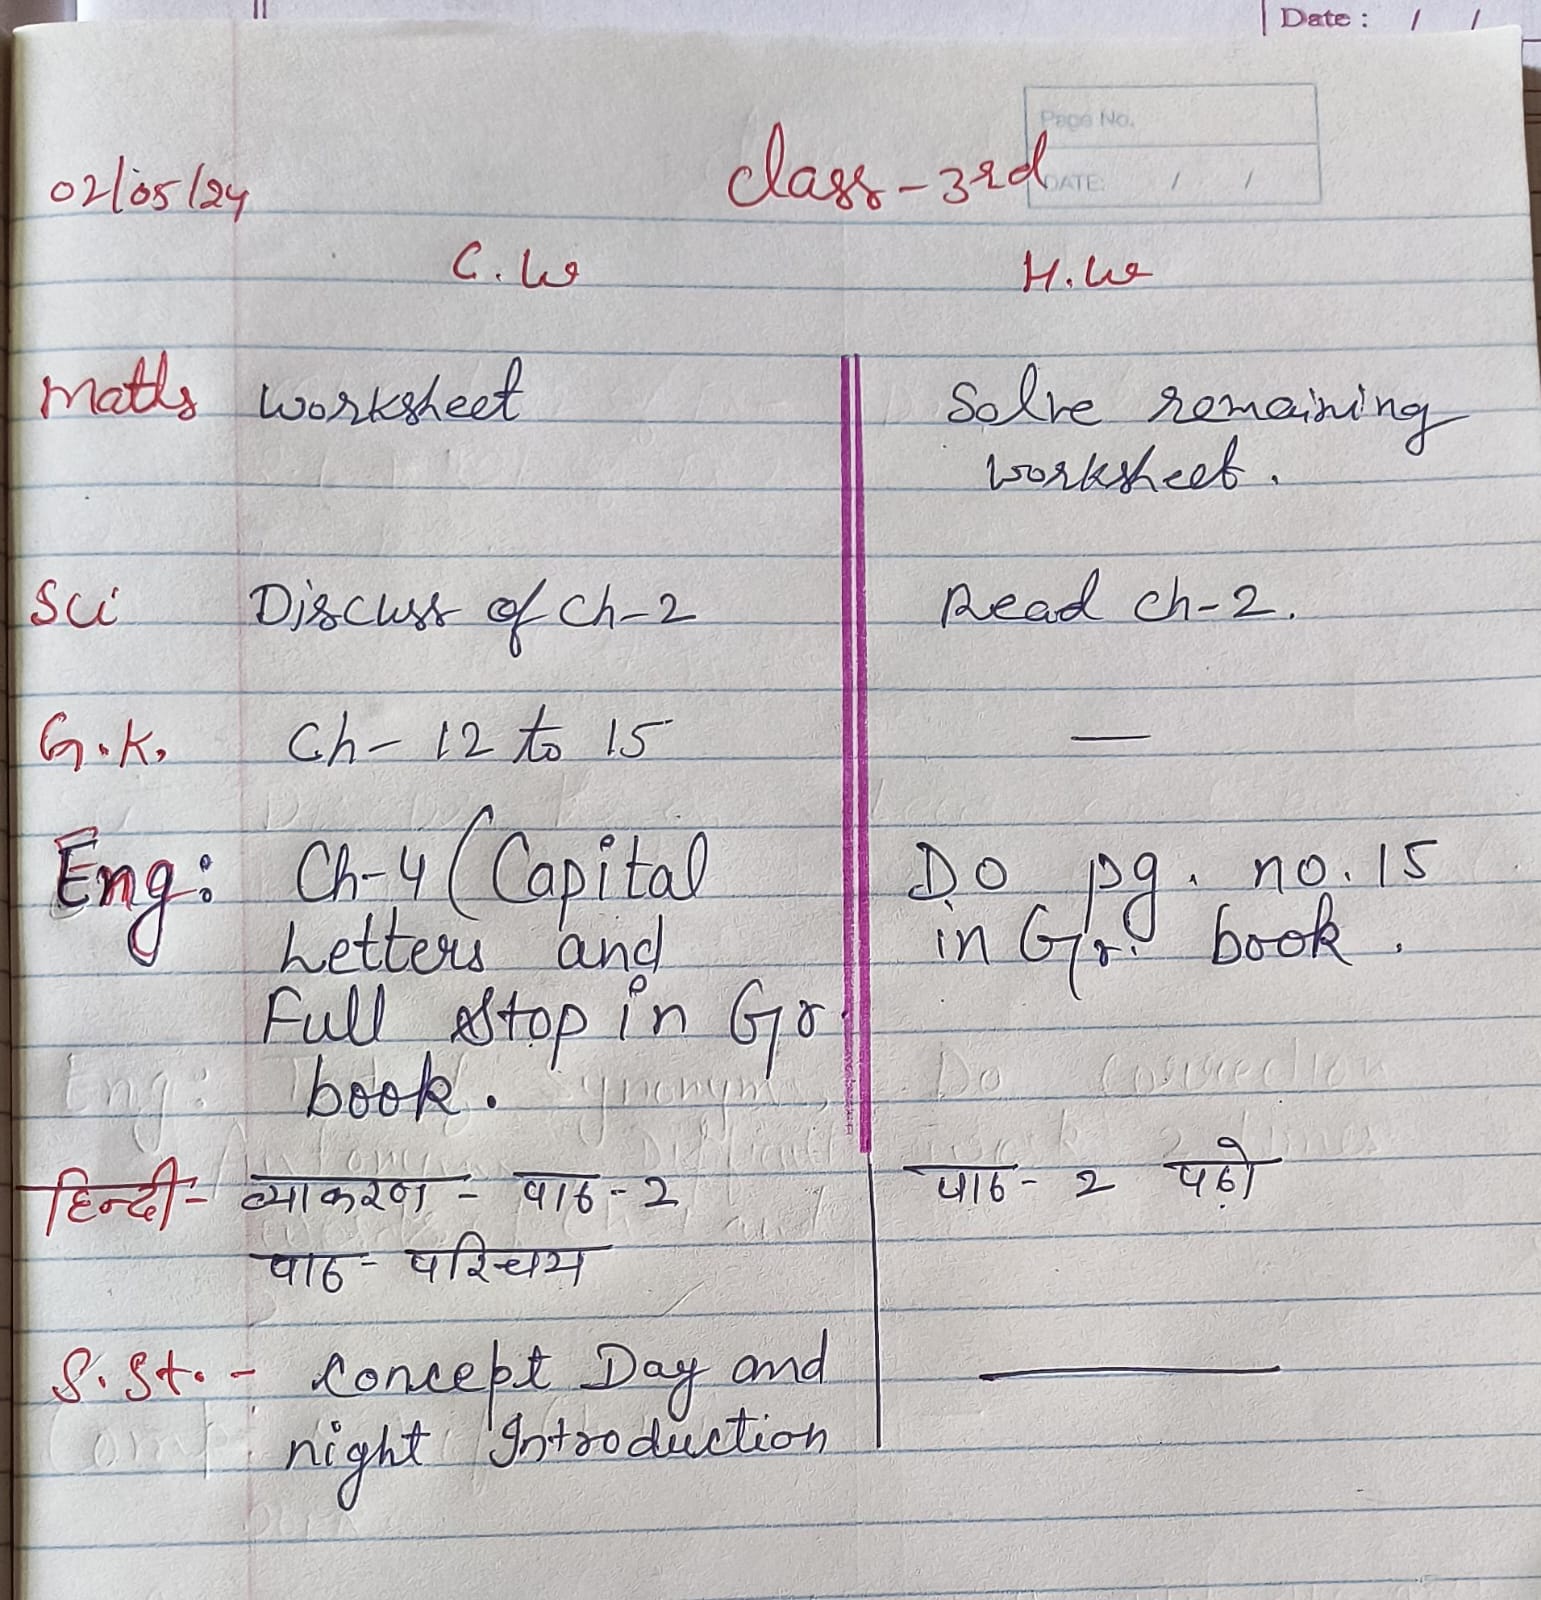 Date : / /
Page No.
DATE: / /
02/05/24 Class-3rd
C.W H.W
Maths Worksheet Solve remaining
worksheet.
Sci Discuss of Ch-2 Read ch-2.
G.K. Ch- 12 to 15 —
Eng: Ch-4 (Capital Do pg. no. 15
Letters and in Gr. book.
Full stop in Gr.
book.
हिन्दी- व्याकरण - पाठ-2 पाठ- 2 पढ़ो
पाठ- परिचय
S.St. - Concept Day and —
night Introduction